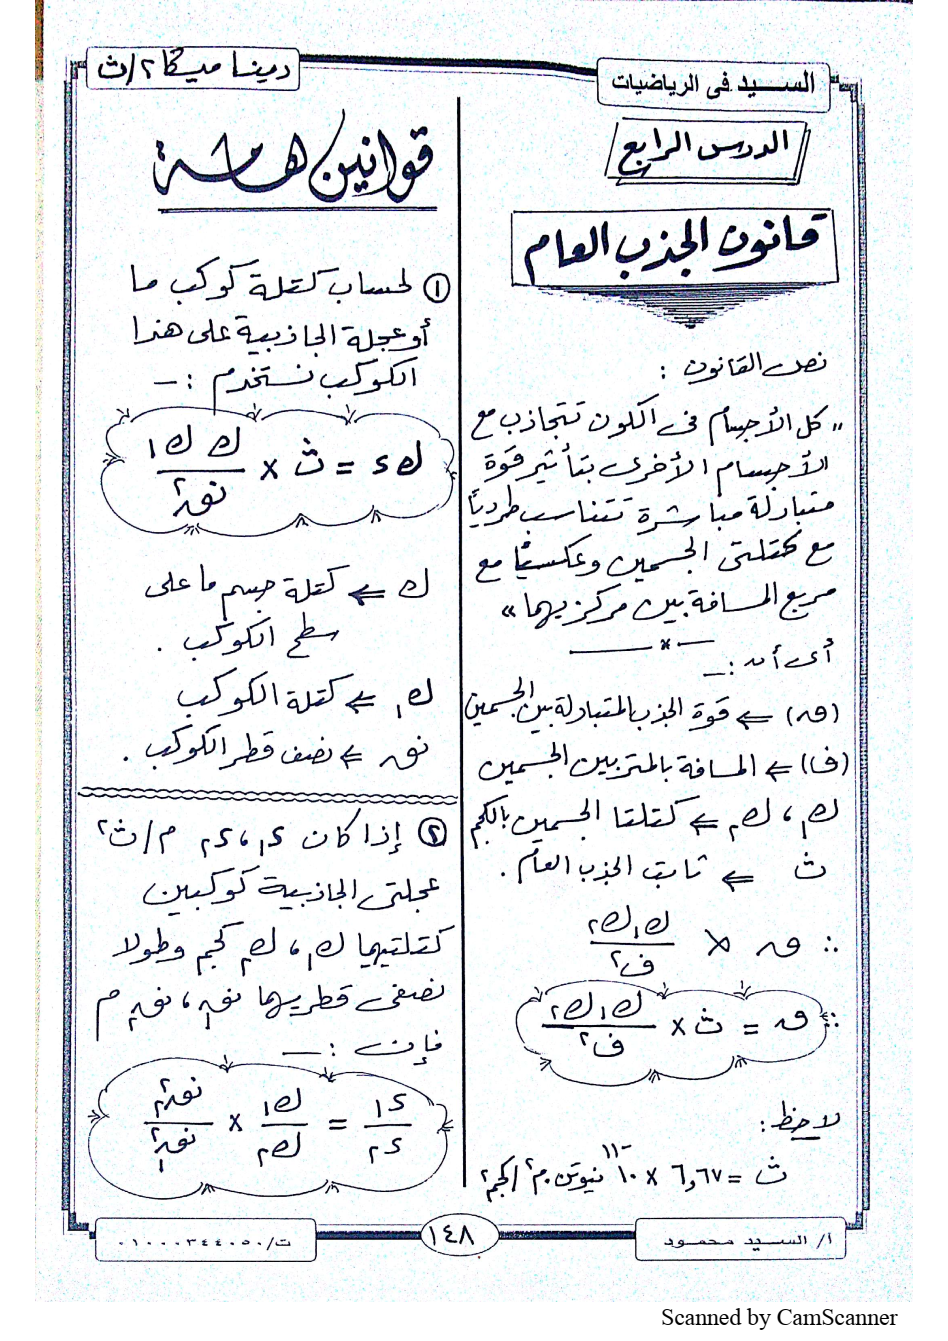 السيد فى الرياضيات
ديناميكا ٢/ث
الدرس الرابع
قانون الجذب العام
نص القانون :
" كل الأجسام فى الكون تتجاذب مع
الأجسام الأخرى بتأثير قوة
متبادلة مباشرة تتناسب طرديًا
مع كتلتى الجسمين وعكسيًا مع
مربع المسافة بين مركزيهما "
أى أن :ـ
(ق) ⇐ قوة الجذب المتبادلة بين الجسمين
(ف) ⇐ المسافة بالمتر بين الجسمين
ك١ ، ك٢ ⇐ كتلتا الجسمين بالكجم
ث ⇐ ثابت الجذب العام .
∴ ق ∝ ك١ ك٢ / ف٢
∴ ق = ث × ك١ ك٢ / ف٢
لاحظ :
ث = ٦,٦٧ × ١٠^-١١ نيوتن.م٢/كجم٢
قوانين هامة
① لحساب كتلة كوكب ما
أو عجلة الجاذبية على هذا
الكوكب نستخدم :ـ
ك ء = ث × ك ك١ / نق٢
ك ⇐ كتلة جسم ما على
سطح الكوكب .
ك١ ⇐ كتلة الكوكب
نق ⇐ نصف قطر الكوكب .
② إذا كان ء١ ، ء٢ م/ث٢
عجلتى الجاذبية كوكبين
كتلتيهما ك١ ، ك٢ كجم وطولا
نصفى قطريهما نق١ ، نق٢ م
فإن :ـ
ء١ / ء٢ = ك١ / ك٢ × نق٢٢ / نق١٢
أ/ السيد محمود
١٤٨
ت/٠١٠٠٠٣٤٤٠٥٠
Scanned by CamScanner